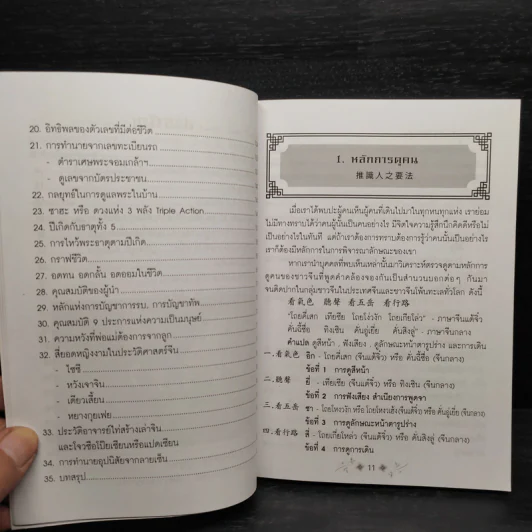 20. อิทธิพลของตัวเลขที่มีต่อชีวิต
21. การทำนายจากเลขทะเบียนรถ
- ตำราเศษพระจอมเกล้าฯ
- ดูเลขจากบัตรประชาชน
22. กลยุทธ์ในการดูแลพระในบ้าน
23. ซาฮะ หรือ ดวงแห่ง 3 พลัง Triple Action
24. ปีเกิดกับธาตุทั้ง 5
25. การไหว้พระธาตุตามปีเกิด
26. กราฟชีวิต
27. อดทน อดกลั้น อดออมในชีวิต
28. คุณสมบัติของผู้นำ
29. หลักแห่งการบัญชาการรบ. การบัญชาทัพ
30. คุณสมบัติ 9 ประการแห่งความเป็นมนุษย์
31. ความหวังที่พ่อแม่ต้องการจากลูก
32. สี่ยอดหญิงงามในประวัติศาสตร์จีน
- ไซซี
- หวังเจาจิน
- เตียวเสี้ยน
- หยางกุยเฟย
33. ประวัติอาจารย์ไท่สร้างเล่าจิน
และใจวซือโป๊ยเซียนหรือแปดเซียน
34. การทำนายอุปนิสัยจากลายเซ็น
35. บทสรุป
1. หลักการดูคน
推識人之要法
เมื่อเราได้พบปะผู้คนเห็นผู้คนที่เดินไปมาในทุกหนทุกแห่ง เราย่อม
ไม่มีทางทราบได้ว่าคนผู้นั้นเป็นคนอย่างไร มีจิตใจความรู้สึกนึกคิดดีหรือไม่
เป็นอย่างไรในทันที แต่ถ้าเราต้องการทราบต้องการรู้ว่าคนนั้นเป็นอย่างไร
เราก็ต้องมีหลักการในการพิจารณาลักษณะของเขา
หากเรานำบุคคลที่พบเห็นเหล่านั้นมาวิเคราะห์ตรวจดูตามหลักการ
ดูคนของชาวจีนที่พูดคล้องจองกันเป็นสำนวนบอกต่อๆ กันมา
จนติดปากในกลุ่มชาวจีนในประเทศจีนและชาวจีนโพ้นทะเลทั่วโลก ดังนี้
看氣色 聽聲 看五岳 看行路
"โถยคี่เสก เทียเซีย โถยโง่วงัก โถยเกี่ยโล่ว" - ภาษาจีนแต้จิ๋ว
คั่นฉี้ซื่อ ทิงเซิน คั่นอู่เยี่ย คั่นสิงลู่" - ภาษาจีนกลาง
คำแปล ดูสีหน้า , ฟังเสียง , ดูลักษณะหน้าตารูปร่าง และการเดิน
一.看氣色 อิก - โถยคี่เสก (จีนแต้จิ๋ว) หรือ คั่นฉี้ซื่อ (จีนกลาง)
ข้อที่ 1 การดูสีหน้า
二.聽聲 ยี่ - เทียเซีย (จีนแต้จิ๋ว) หรือ ทิงเซิน (จีนกลาง)
ข้อที่ 2 การฟังเสียง สำเนียงการพูดจา
三.看五岳 ซา - โถยโหงวงัก หรือ โถยโหงวฮั้ง(จีนแต้จิ๋ว) หรือ คั่นอู่เยี่ย (จีนกลาง)
ข้อที่ 3 การดูลักษณะหน้าตารูปร่าง
四.看行路 สี่ - โถยเกี่ยโหล่ว (จีนแต้จิ๋ว) หรือ คั่นสิงลู่ (จีนกลาง)
ข้อที่ 4 การดูการเดิน
11